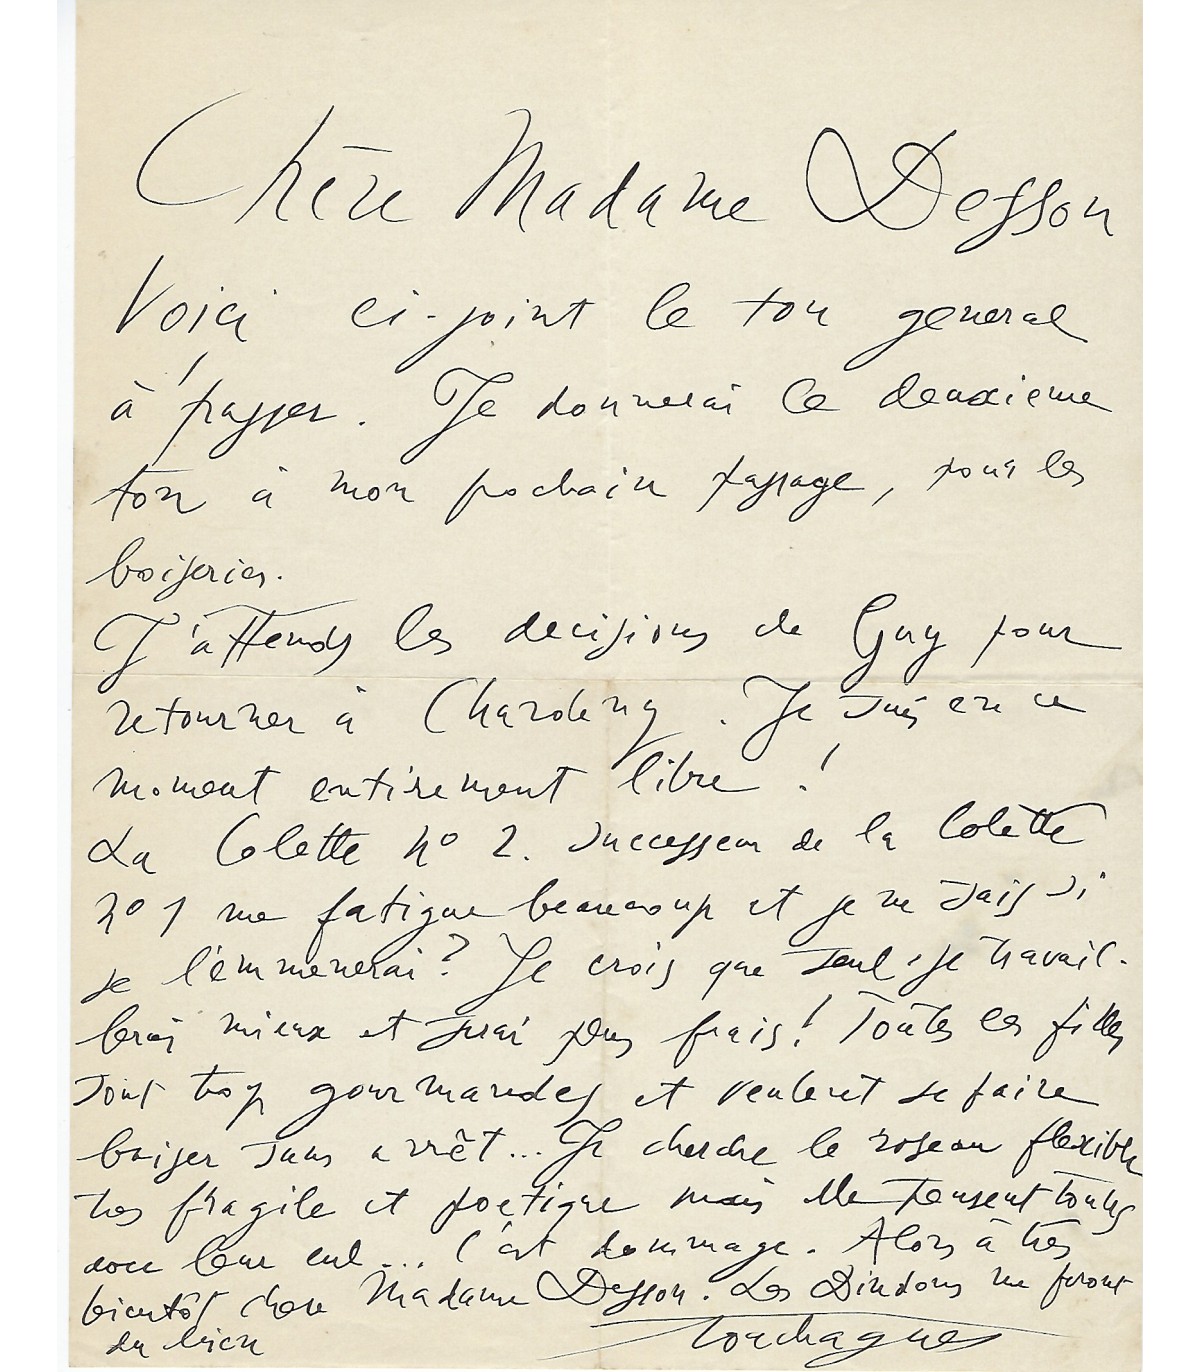 Chère Madame Desson
Voici ci-joint le ton general
à passer. Je donnerai le deuxieme
ton à mon prochain passage, pour les
boiseries.
J'attends les decisions de Guy pour
retourner à . Je suis en ce
moment entièrement libre !
La Colette nº 2. successeur de la Colette
nº 1 me fatigue beaucoup et je ne sais si
je l'emmenerai ? Je crois que seul je travail-
lerai mieux et serai plus frais ! Toutes les filles
sont trop gourmandes et veulent se faire
baiser sans arrêt... Je cherche le roseau flexible
très fragile et poetique mais elle pensent toutes
avec leur cul... C'est dommage. Alors à très
bientôt chere Madame Desson. Les Dindons me feront
du bien Touchagues